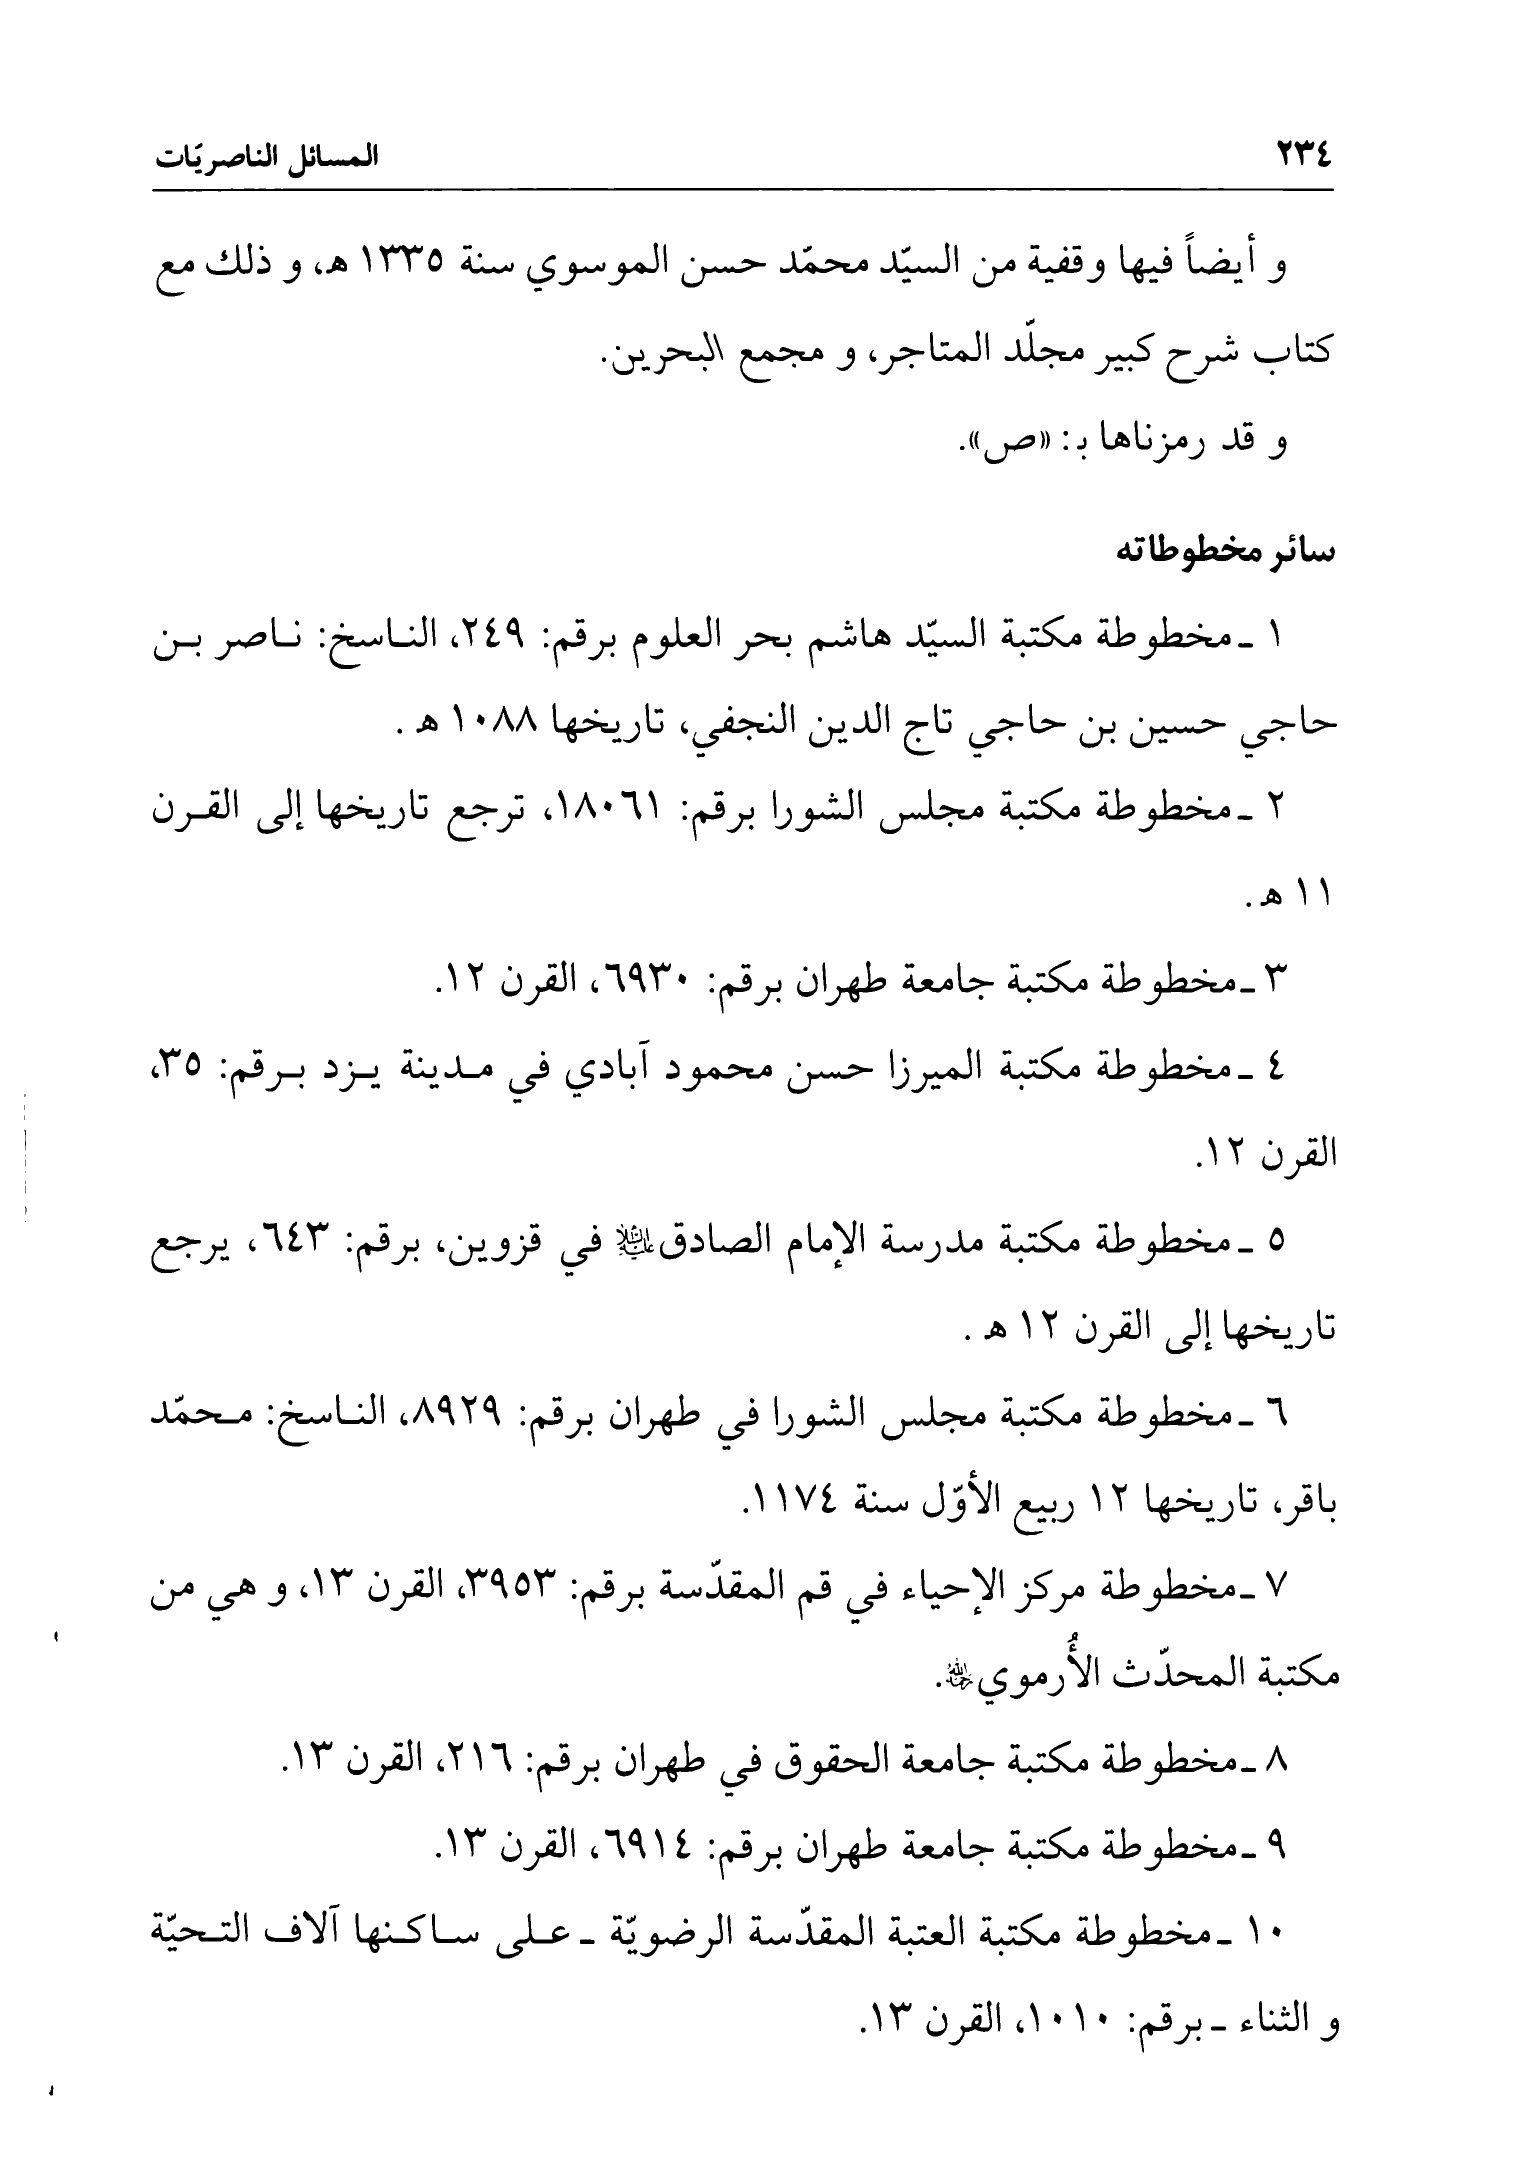 ٢٣٤ المسائل الناصريّات
و أيضاً فيها وقفية من السيّد محمّد حسن الموسوي سنة ١٣٣٥ هـ، و ذلك مع
كتاب شرح كبير مجلّد المتاجر، و مجمع البحرين.
و قد رمزناها بـ: «ص».
سائر مخطوطاته
١ ـ مخطوطة مكتبة السيّد هاشم بحر العلوم برقم: ٢٤٩، الناسخ: ناصر بن
حاجي حسين بن حاجي تاج الدين النجفي، تاريخها ١٠٨٨ هـ .
٢ ـ مخطوطة مكتبة مجلس الشورا برقم: ١٨٠٦١، ترجع تاريخها إلى القرن
١١ هـ .
٣ ـ مخطوطة مكتبة جامعة طهران برقم: ٦٩٣٠، القرن ١٢.
٤ ـ مخطوطة مكتبة الميرزا حسن محمود آبادي في مدينة يزد برقم: ٣٥،
القرن ١٢.
٥ ـ مخطوطة مكتبة مدرسة الإمام الصادق عليه السلام في قزوين، برقم: ٦٤٣، يرجع
تاريخها إلى القرن ١٢ هـ .
٦ ـ مخطوطة مكتبة مجلس الشورا في طهران برقم: ٨٩٢٩، الناسخ: محمّد
باقر، تاريخها ١٢ ربيع الأوّل سنة ١١٧٤.
٧ ـ مخطوطة مركز الإحياء في قم المقدّسة برقم: ٣٩٥٣، القرن ١٣، و هي من
مكتبة المحدّث الأُرموي رحمه الله.
٨ ـ مخطوطة مكتبة جامعة الحقوق في طهران برقم: ٢١٦، القرن ١٣.
٩ ـ مخطوطة مكتبة جامعة طهران برقم: ٦٩١٤، القرن ١٣.
١٠ ـ مخطوطة مكتبة العتبة المقدّسة الرضويّة ـ على ساكنها آلاف التحيّة
و الثناء ـ برقم: ١٠١٠، القرن ١٣.